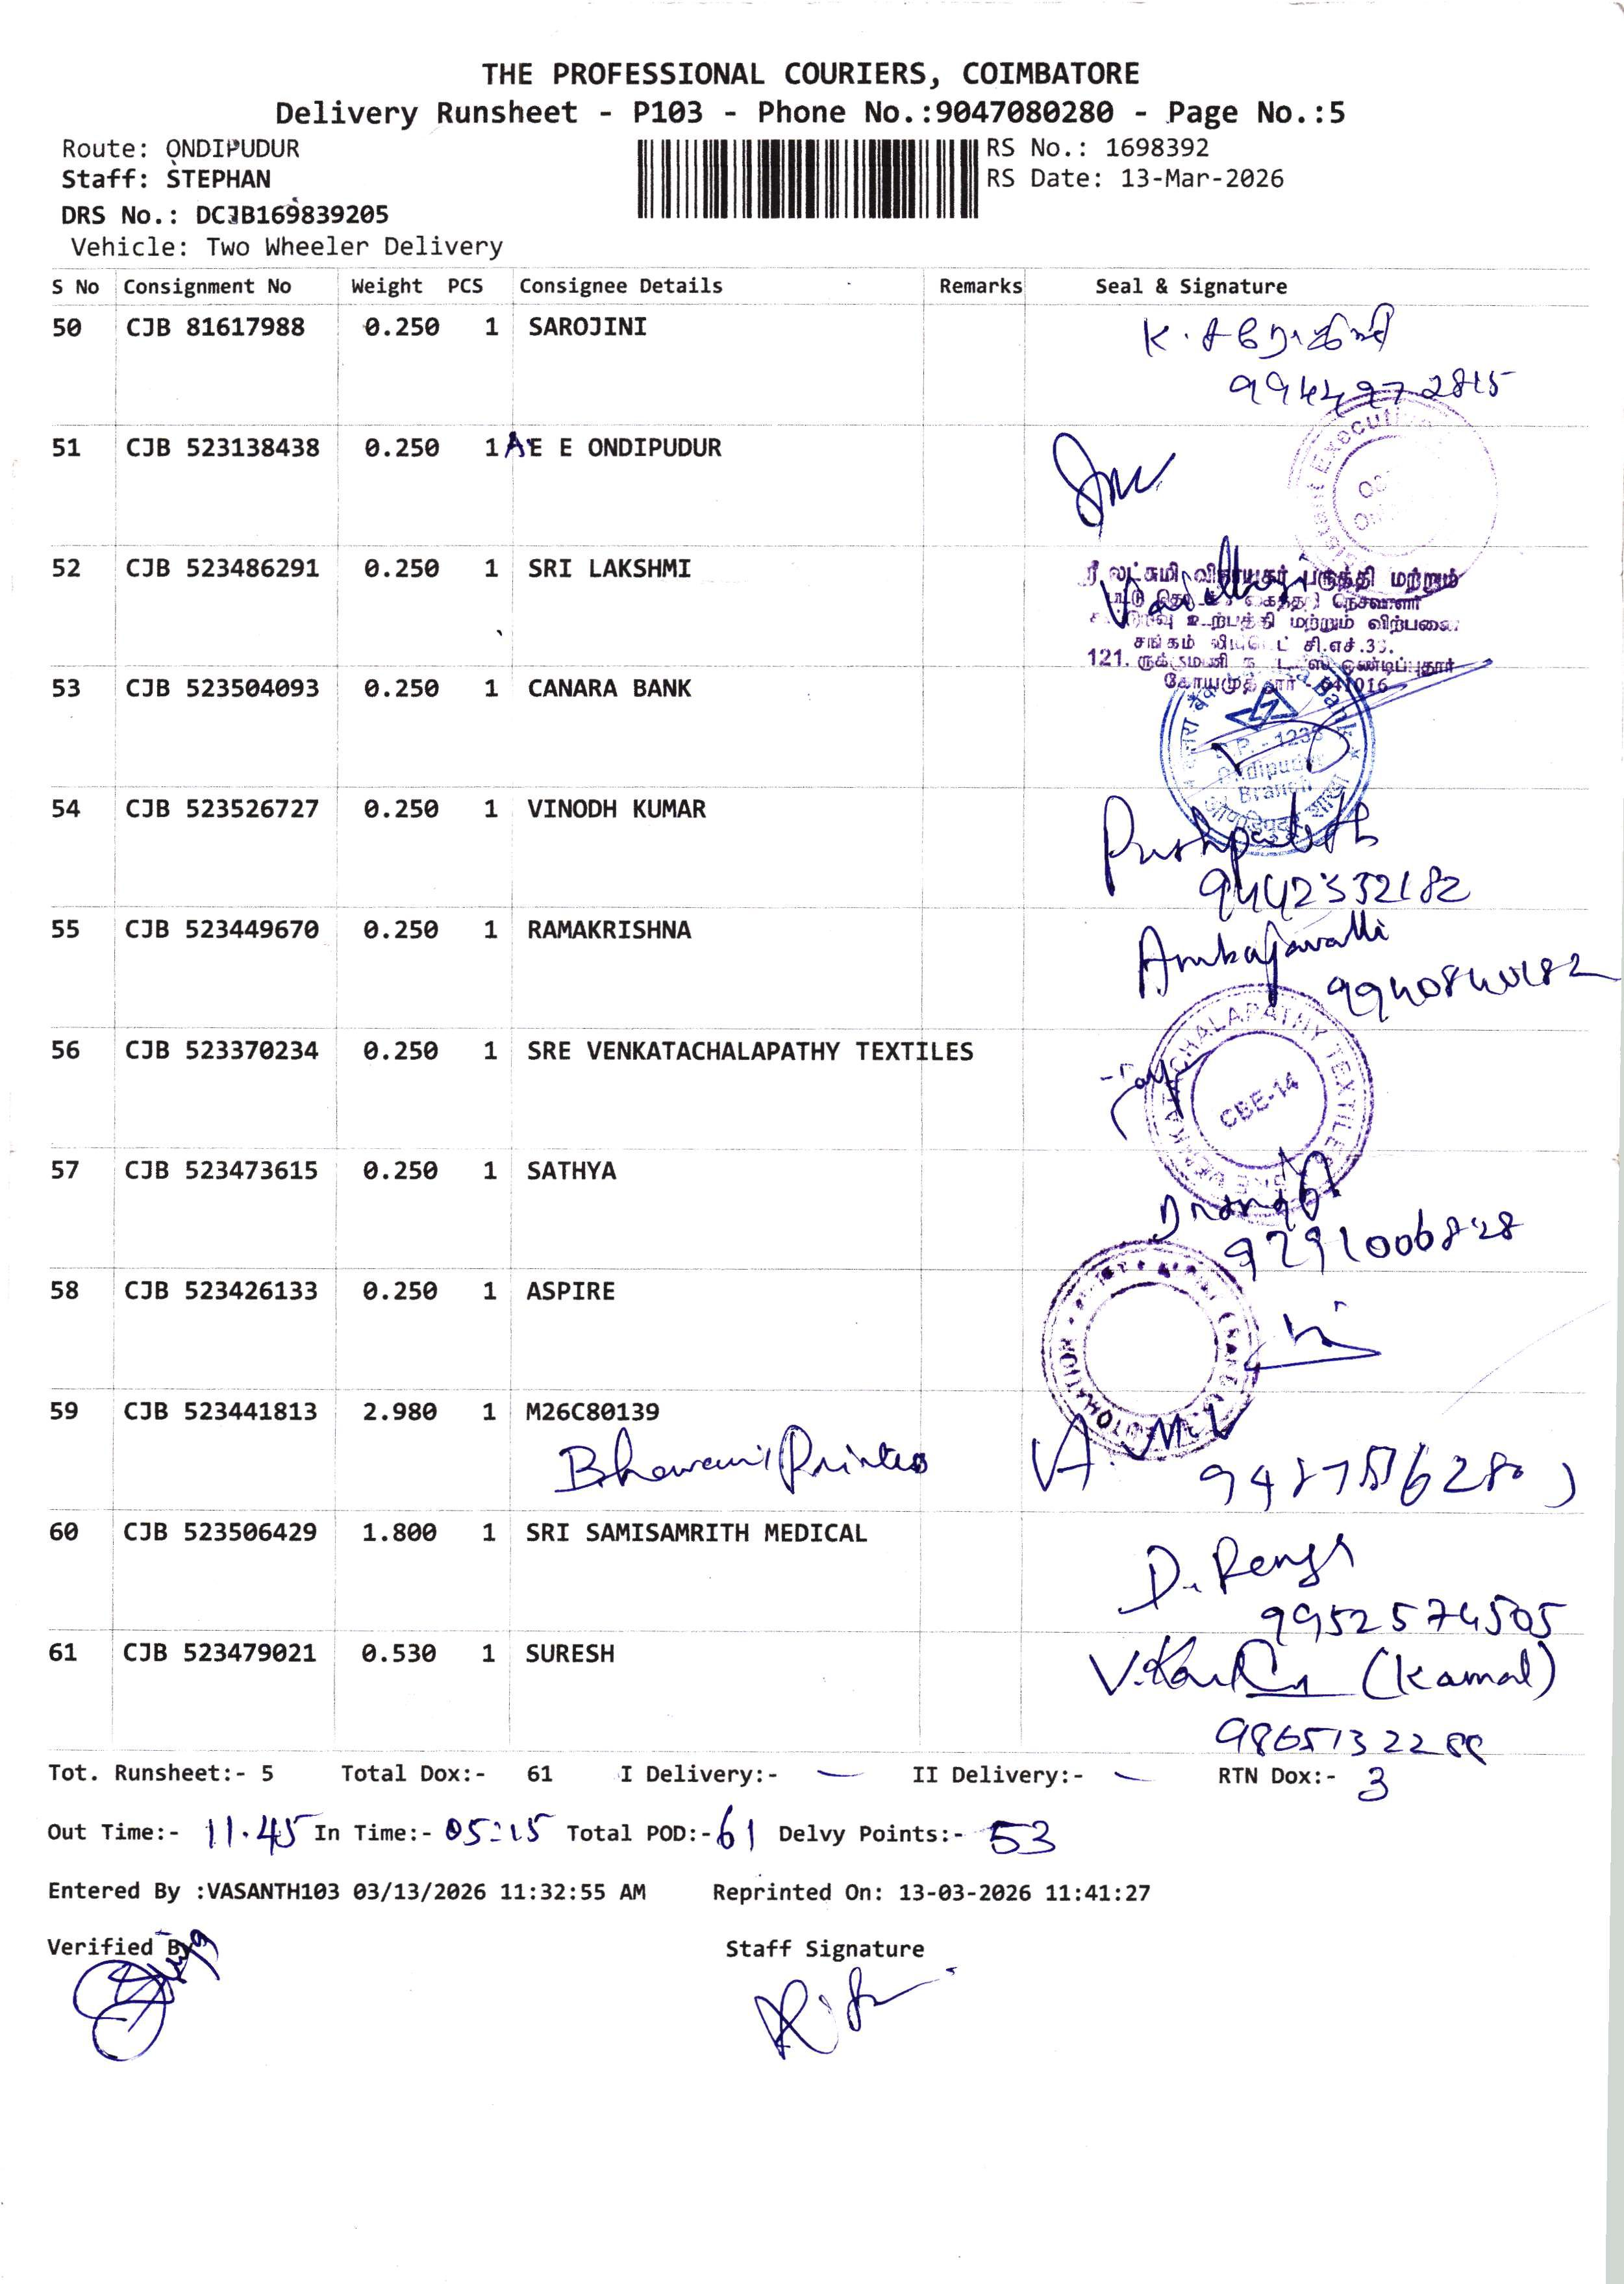 THE PROFESSIONAL COURIERS, COIMBATORE
Delivery Runsheet - P103 - Phone No.:9047080280 - Page No.:5
Route: ONDIPUDUR
RS No.: 1698392
Staff: STEPHAN
RS Date: 13-Mar-2026
DRS No.: DCJB169839205
Vehicle: Two Wheeler Delivery
S No Consignment No Weight PCS Consignee Details Remarks Seal & Signature
50 CJB 81617988 0.250 1 SAROJINI
51 CJB 523138438 0.250 1 AE E ONDIPUDUR
52 CJB 523486291 0.250 1 SRI LAKSHMI
பருத்தி மற்றும்
நெசவாளர்
உற்பத்தி மற்றும் விற்பனை
சங்கம் சி.எச்.
121. ஒண்டிப்புதூர்
53 CJB 523504093 0.250 1 CANARA BANK
Bank
Ondipudur
Branch
54 CJB 523526727 0.250 1 VINODH KUMAR
9442332182
55 CJB 523449670 0.250 1 RAMAKRISHNA
56 CJB 523370234 0.250 1 SRE VENKATACHALAPATHY TEXTILES
VENKATACHALAPATHY TEXTILES
CBE-14
57 CJB 523473615 0.250 1 SATHYA
58 CJB 523426133 0.250 1 ASPIRE
59 CJB 523441813 2.980 1 M26C80139
Bhavani Printers
60 CJB 523506429 1.800 1 SRI SAMISAMRITH MEDICAL
9952574505
61 CJB 523479021 0.530 1 SURESH
(Kamal)
Tot. Runsheet:- 5 Total Dox:- 61 I Delivery:- — II Delivery:- — RTN Dox:- 3
Out Time:- 11.45 In Time:- 05:15 Total POD:- 61 Delvy Points:- 53
Entered By :VASANTH103 03/13/2026 11:32:55 AM Reprinted On: 13-03-2026 11:41:27
Verified By
Staff Signature